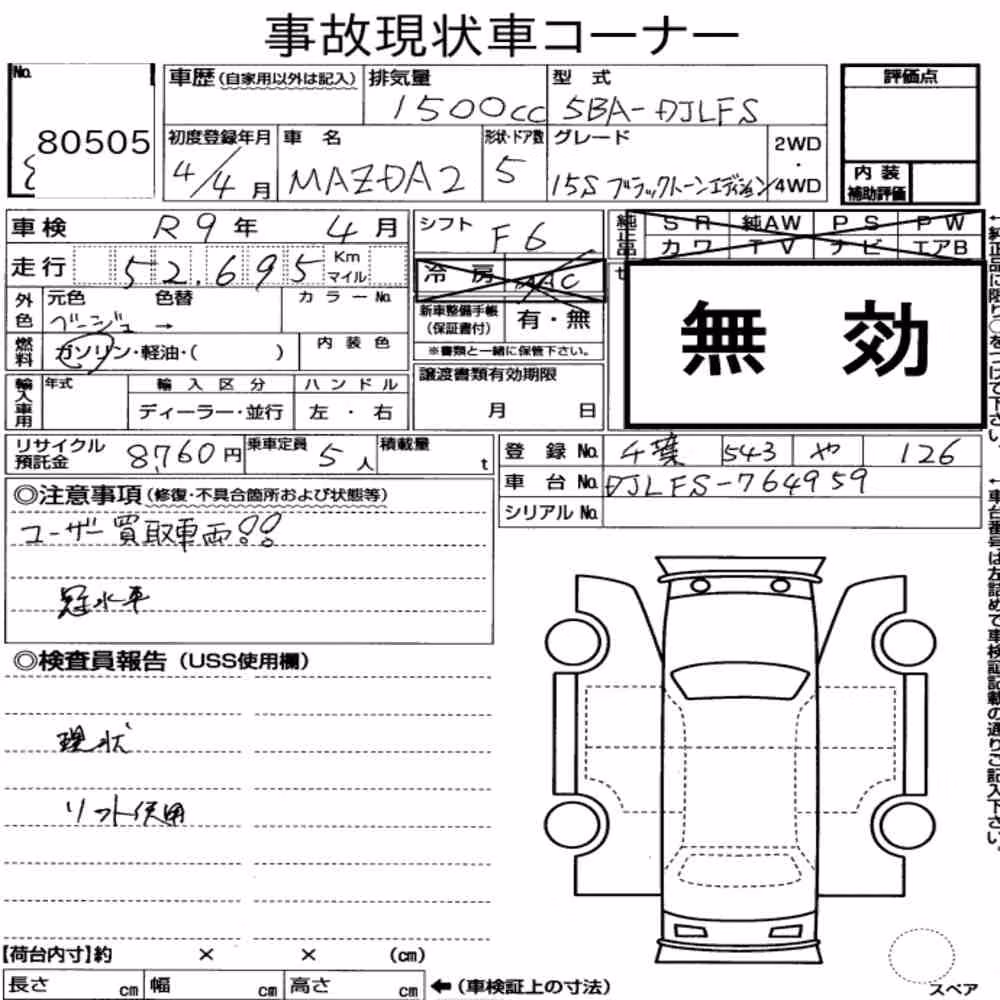 事故現状車コーナー
No. 80505
車歴(自家用以外は記入) 排気量 1500cc 型式 5BA-DJLFS
評価点
初度登録年月 4/4月 車名 MAZDA2 形状・ドア数 5 グレード 15S ブラックトーンエディション 2WD・4WD
内装補助評価
車検 R9年 4月 シフト F6
純正品 SR 純AW PS PW
カワ TV ナビ エアB
走行 52,695 Km マイル
冷房 AAC
無効
外色 元色 ベージュ → 色替 カラーNo.
新車整備手帳(保証書付) 有・無
※書類と一緒に保管下さい。
燃料 ガソリン・軽油・( ) 内装色
譲渡書類有効期限
月 日
輸入車用 年式 輸入区分 ハンドル
ディーラー・並行 左・右
リサイクル預託金 8,760円 乗車定員 5人 積載量 t
登録No. 千葉 543 や 126
車台No. DJLFS-764959
シリアルNo.
◎注意事項(修復・不具合箇所および状態等)
ユーザー買取車両!!
冠水車
◎検査員報告(USS使用欄)
現状
リフト使用
【荷台内寸】約 × × (cm)
長さ cm 幅 cm 高さ cm ←(車検証上の寸法)
スペア
←純正品に限り○をつけて下さい。
←車台番号は左詰めで車検証記載の通りご記入下さい。